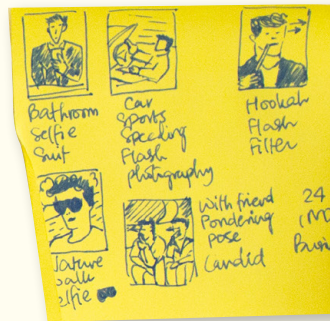 Bathroom
Selfie
Suit
Car
Sports
Speeding
Flash
photography
Hookah
Flash
Filter
Nature
walk
Selfie
With friend
Pondering
pose
Candid
24